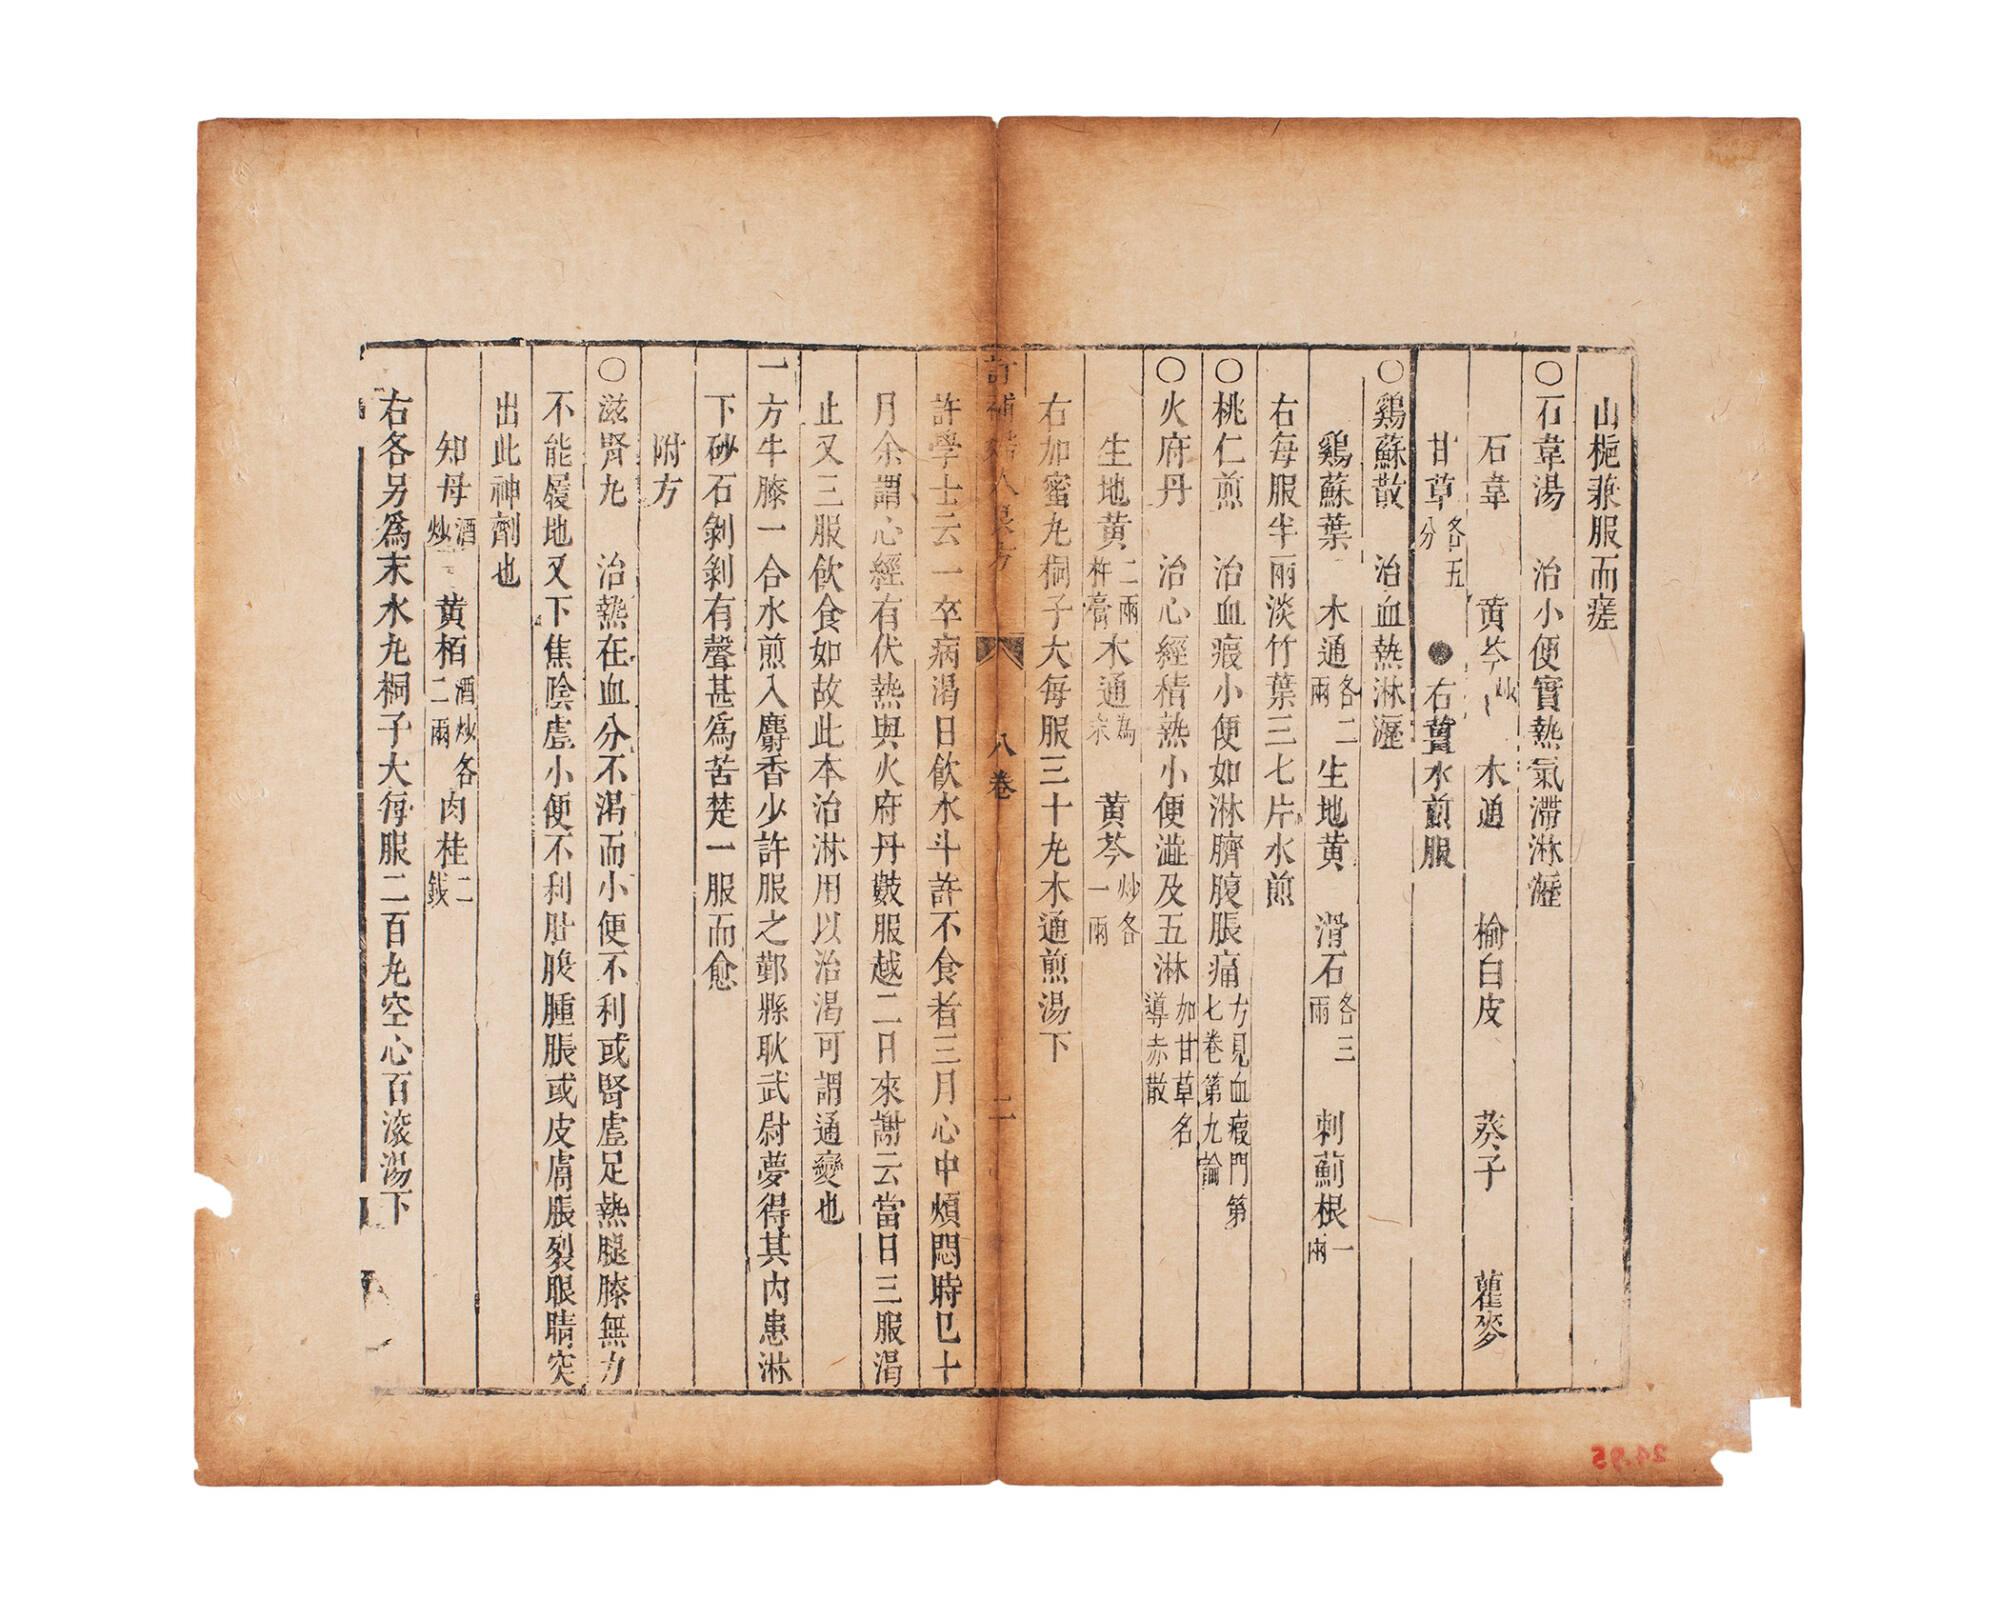 山梔兼服而瘥
○石韋湯　治小便實熱氣滯淋瀝
石韋　黄芩炒　木通　榆白皮　葵子　瞿麥
甘草各五分　●右㕮水煎服
○鷄蘇散　治血熱淋瀝
鷄蘇葉　木通各二兩　生地黄　滑石各三兩　刺薊根一兩
右每服半兩淡竹葉三七片水煎
○桃仁煎　治血瘕小便如淋臍腹脹痛方見血瘕門第七卷第九論
○火府丹　治心經積熱小便澁及五淋加甘草名導赤散
生地黄二兩杵膏　木通為末　黄芩炒各一兩
右加蜜丸桐子大每服三十丸木通煎湯下
訂補 人良方　八卷　二
許學士云一卒病渴日飲水斗許不食者三月心中煩悶時已十
月余謂心經有伏熱與火府丹數服越二日來謝云當日三服渴
止又三服飲食如故此本治淋用以治渴可謂通變也
一方牛膝一合水煎入麝香少許服之鄞縣耿武尉夢得其内患淋
下砂石剝剝有聲甚爲苦楚一服而愈
附方
○滋腎丸　治熱在血分不渴而小便不利或腎虚足熱腿膝無力
不能履地又下焦陰虚小便不利肚腹腫脹或皮膚脹裂眼睛突
出此神劑也
知母酒炒二　黄栢酒炒各二兩　肉桂二錢
右各另爲末水丸桐子大每服二百丸空心百滚湯下
24.95